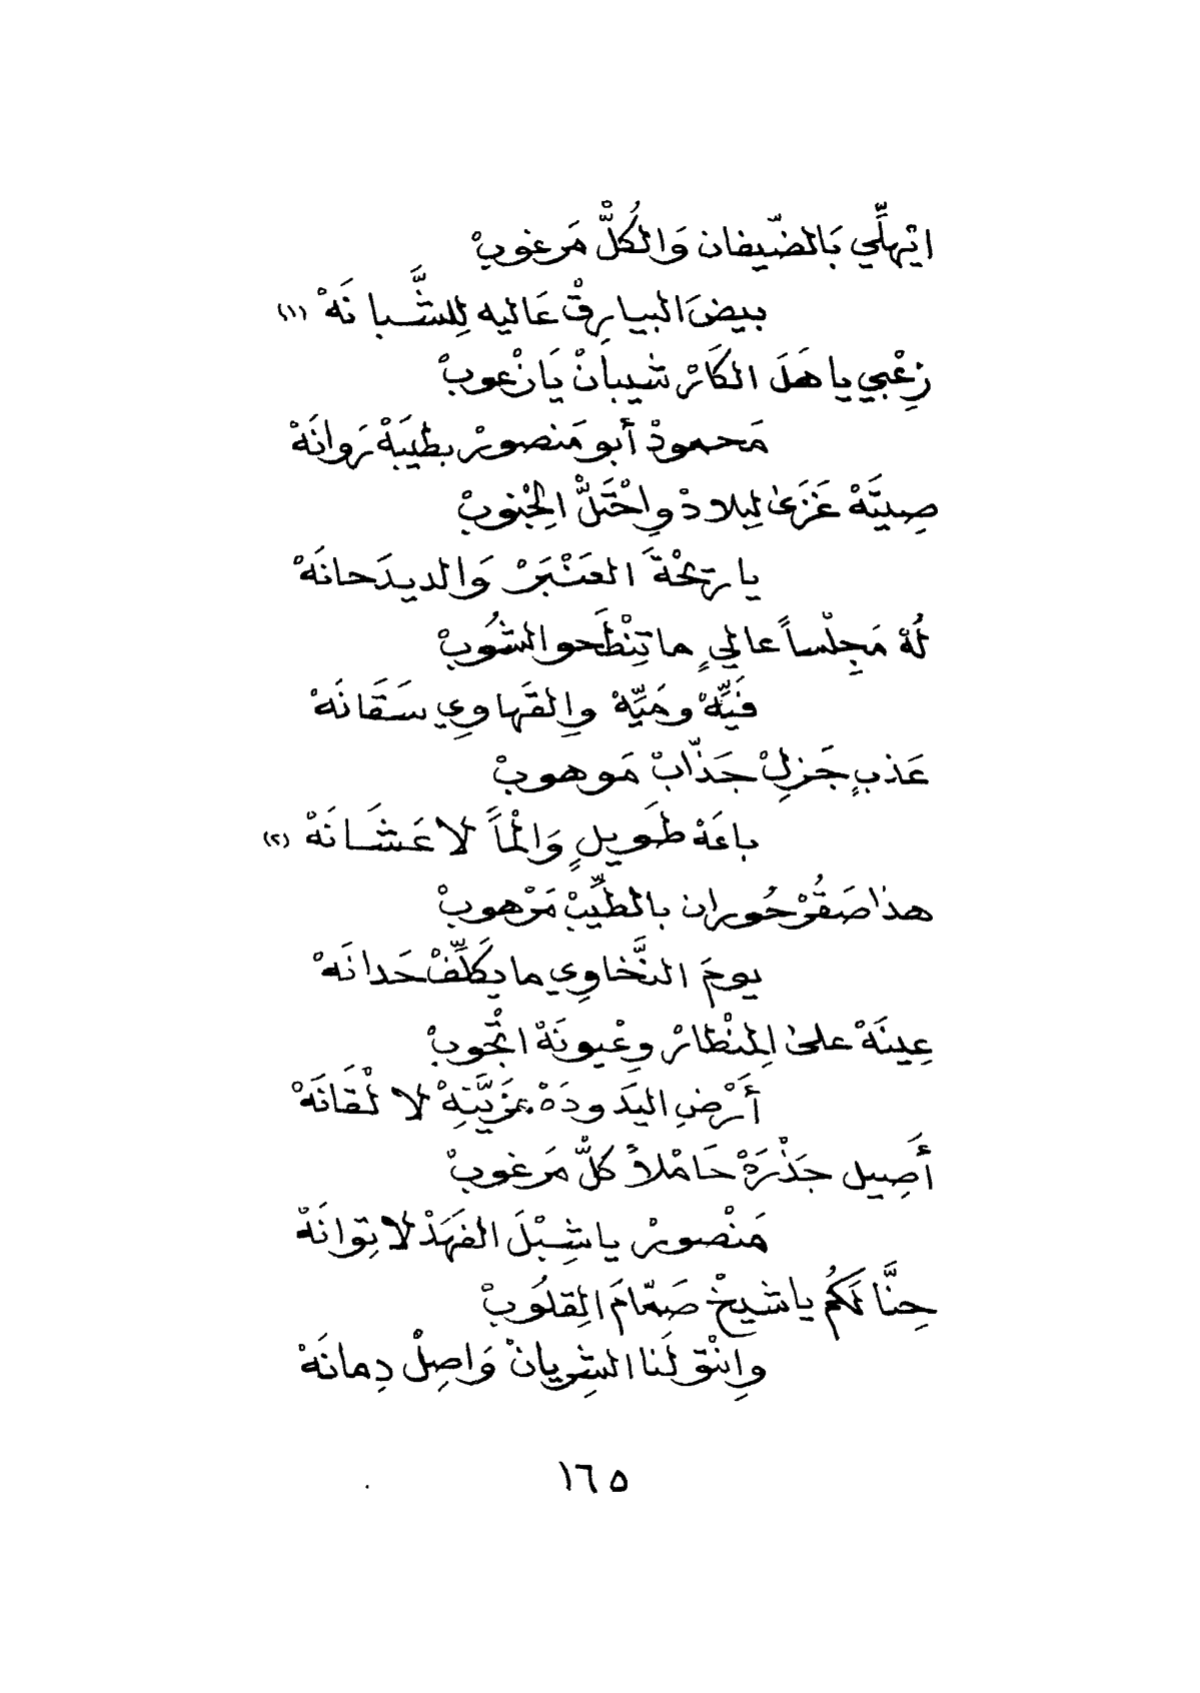 ايْهلِّي بَالضّيفان وَالكُلّْ مَرغوبْ
بيضَ البيارِقْ عَاليه لِلشَّبانَهْ (١)
زِعْبي يا هَلَ الكَارْ شيبانْ يَا زْعوبْ
مَحمودْ أبو مَنصورْ بطيبَهْ رَوانَهْ
صِيتَهْ غَزَىٰ لِبلادْ وِاحْتَلّْ الِجْنوبْ
يا ريحْةَ العَنْبَرْ وَالديدَحانَهْ
لُهْ مَجِلْساً عالي ٍ ما تِنْطَحو الشُوبْ
فَيِّهْ ومَيِّهْ وِالقَهاوِي سَقَانَهْ
عَذبٍ جَزلِْ جَذّابْ مَوهوبْ
باعَهْ طَويلٍ وَالْماً لا عَشَانَهْ (٢)
هذا صَقُرْ حُوران بالطيِّبْ مَرْهوبْ
يومَ النَّخاوِي ما يكَلِّفْ حَدانَهْ
عِينَهْ علىٰ المِنْظارْ وِعْيونَهْ اتْجوبْ
أَرْضِ اليَدودَهْ بمَزيَّتِهْ لا لْقَانَهْ
أَصِيل جَذْرَهْ حَامْلاً كلّْ مَرغوبْ
مَنْصورْ يا شِبْلَ الفَهَدْ لا تِوانَهْ
حِنَّا لَكُم يا شيخْ صَمّامَ القِلُوبْ
وِانْتو لَنا الشِريانْ وَاصِلْ دِمانَهْ
١٦٥